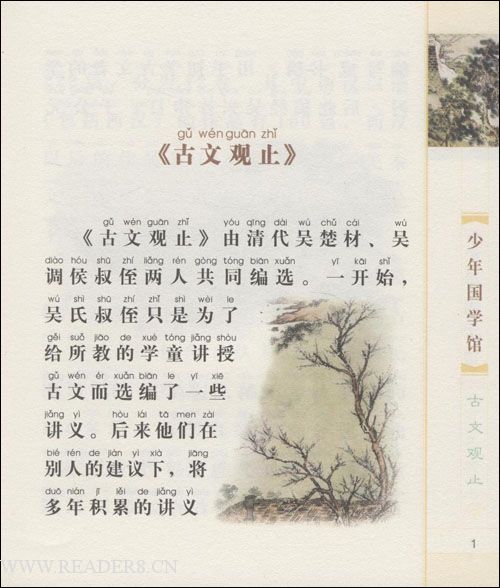 gǔ wén guān zhǐ
《古文观止》
gǔ wén guān zhǐ yóu qīng dài wú chǔ cái wú
《古文观止》由清代吴楚材、吴
diào hóu shū zhí liǎng rén gòng tóng biān xuǎn yī kāi shǐ
调侯叔侄两人共同编选。一开始，
wú shì shū zhí zhǐ shì wèi le
吴氏叔侄只是为了
gěi suǒ jiāo de xué tóng jiǎng shòu
给所教的学童讲授
gǔ wén ér xuǎn biān le yī xiē
古文而选编了一些
jiǎng yì hòu lái tā men zài
讲义。后来他们在
bié rén de jiàn yì xià jiāng
别人的建议下，将
duō nián jī lěi de jiǎng yì
多年积累的讲义
【少年国学馆】
古文观止
1
WWW.READER8.CN